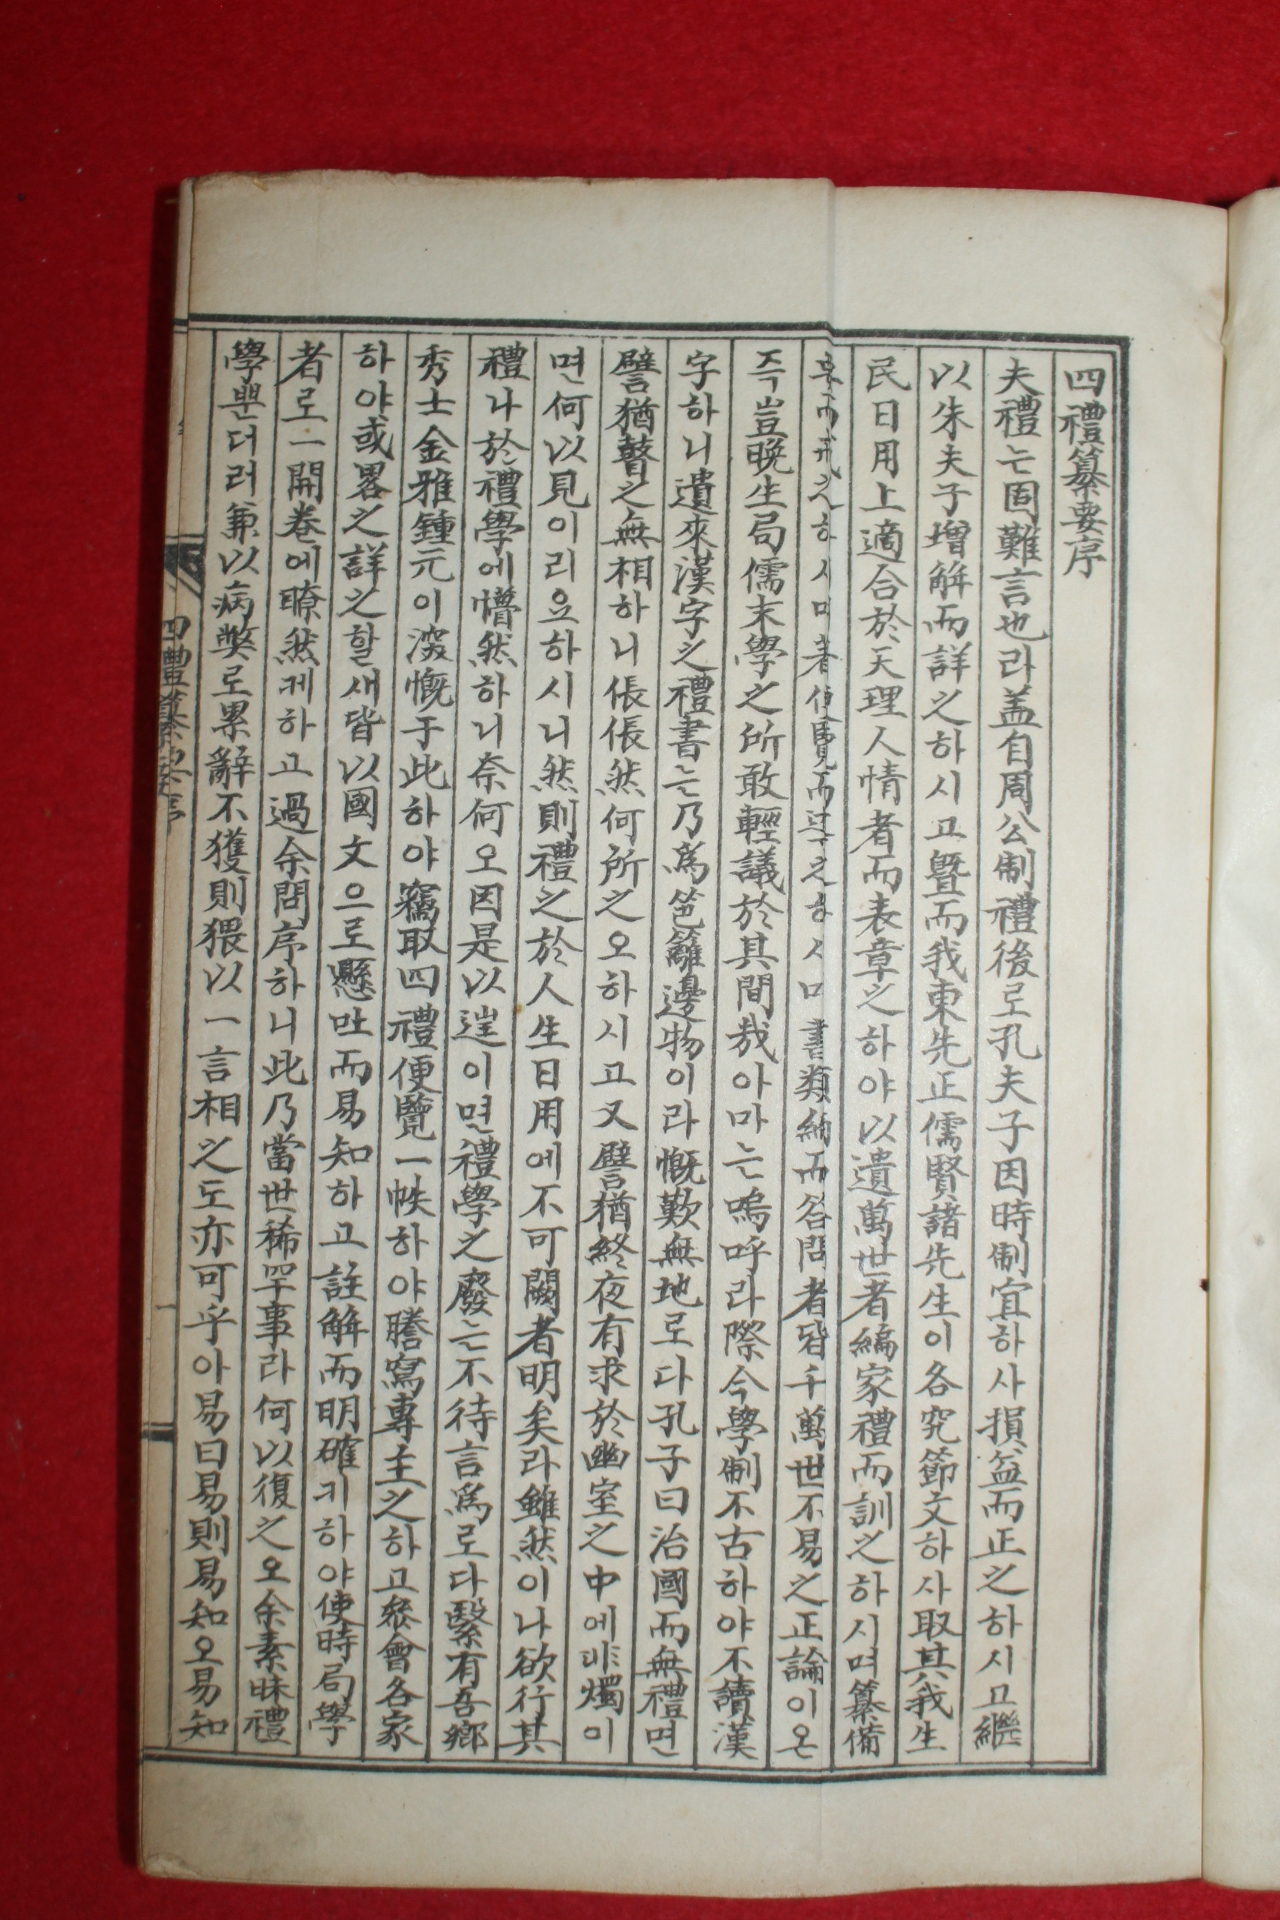 四禮纂要序
夫禮는固難言也라盖自周公制禮後로孔夫子因時制宜하사損益而正之하시고繼
以朱夫子增解而詳之하시고曁而我東先正儒賢諸先生이各究節文하사取其我生
民日用上適合於天理人情者而表章之하야以遺萬世者編家禮而訓之하시며纂備
而 之하시며 者便覽而 之하시며書類納而答問者皆千萬世不易之正論이온
즉豈晩生局儒末學之所敢輕議於其間哉아마는嗚呼라際今學制不古하야不讀漢
字하니遺來漢字之禮書는乃爲笆籬邊物이라慨歎無地로다孔子曰治國而無禮면
譬猶瞽之無相하니倀倀然何所之오하시고又譬猶終夜有求於幽室之中에非燭이
면何以見이리요하시니然則禮之於人生日用에不可闕者明矣라雖然이나欲行其
禮나於禮學에懵然하니奈何오因是以 이면禮學之廢는不待言爲로다緊有吾鄕
秀士金雅鍾元이深慨于此하야竊取四禮便覽一帙하야謄寫專主之하고叅會各家
하야或畧之詳之할새皆以國文으로懸吐而易知하고註解而明確키하야使時局學
者로一開卷에暸然케하고過余問序하니此乃當世稀罕事라何以復之오余素昧禮
學뿐더러兼以病獘로累辭不獲則猥以一言相之도亦可乎아易曰易則易知오易知
四禮纂要序
一